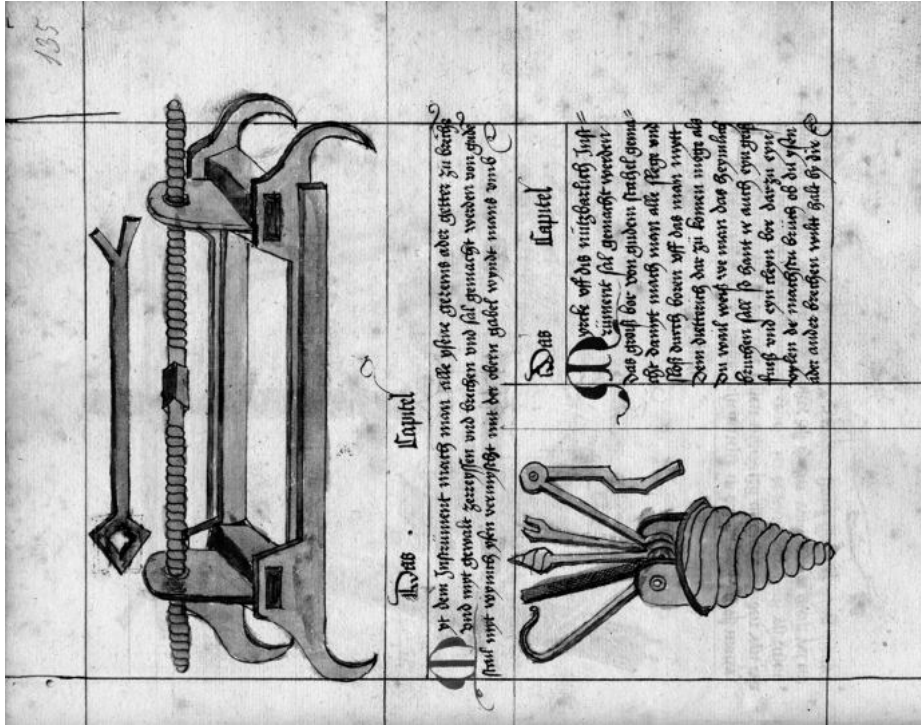 135
Das Capitel
Mit dem Instrument mach man alle ysene gerems ader getter zu breche
vnd myt gewalt zerreyssen vnd brechen vnd sal gemacht werden von gude
stail myt wynich ysen vermyscht mit der obern gabel wyndt mans vmb
Das Capitel
Myrck vff dis nutzbarlich Inst=
rument sal gemacht werden
Das groiß bor von gudem stahel gema=
cht damyt mach man alle slege vnd
sloß durch boren vff das man mytt
Dem dietterich dar zu komen moge als
Du wol weist we man das heymlich
bruchen sall so hant er auch eyn
fuß vnd eyn clein bor darzu eyn
vylen de machstu bruch ob du ysen
ader ander brechen wilt halt by die